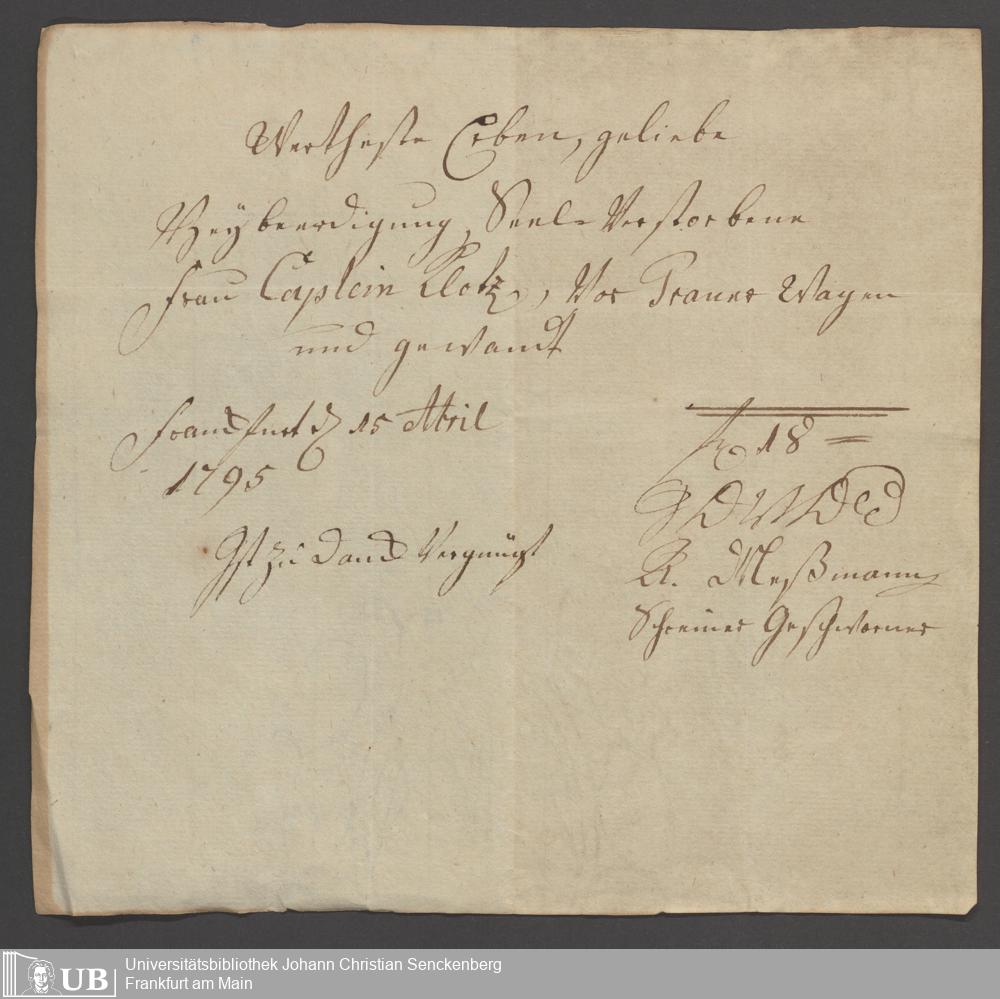 Wertheste Erben, geliebe
Bey beerdigung, Seel. Verstorbene
Frau Caplein Klotz, Vor Trauer Wagen
und gewandt
Franckfurt d 15 Abril
1795
f 18 =
Ist zu danck Vergnügt
R. Meßmann
Schreiner Geschworner
UB
Universitätsbibliothek Johann Christian Senckenberg
Frankfurt am Main